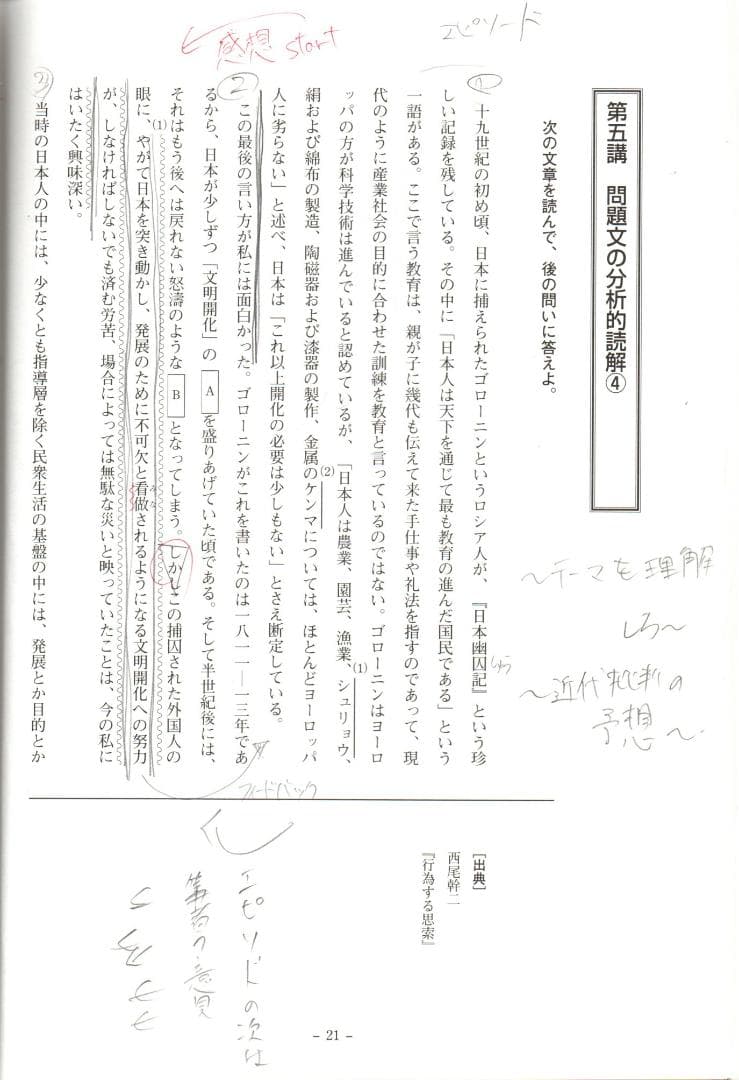 第五講　問題文の分析的読解④
次の文章を読んで、後の問いに答えよ。
エピソード
感想 start
1
十九世紀の初め頃、日本に捕えられたゴローニンというロシア人が、『日本幽囚記』という珍
しゅう
しい記録を残している。その中に「日本人は天下を通じて最も教育の進んだ国民である」という
一語がある。ここで言う教育は、親が子に幾代も伝えて来た手仕事や礼法を指すのであって、現
代のように産業社会の目的に合わせた訓練を教育と言っているのではない。ゴローニンはヨーロ
ッパの方が科学技術は進んでいると認めているが、「日本人は農業、園芸、漁業、シュリョウ、
(1)
絹および綿布の製造、陶磁器および漆器の製作、金属のケンマについては、ほとんどヨーロッパ
(2)
人に劣らない」と述べ、日本は「これ以上開化の必要は少しもない」とさえ断定している。
2
この最後の言い方が私には面白かった。ゴローニンがこれを書いたのは一八一一―一三年であ
るから、日本が少しずつ「文明開化」の A を盛りあげていた頃である。そして半世紀後には、
それはもう後へは戻れない怒濤のような B となってしまう。しかしこの捕囚された外国人の
眼に、やがて日本を突き動かし、発展のために不可欠と看做されるようになる文明開化への努力
(1)
が、しなければしないでも済む労苦、場合によっては無駄な災いと映っていたことは、今の私に
はいたく興味深い。
3
当時の日本人の中には、少なくとも指導層を除く民衆生活の基盤の中には、発展とか目的とか
〜テーマを理解
しろ〜
〜近代批判の
予想〜
フィードバック
[出典]
西尾幹二
『行為する思索』
エピソードの次は
筆者の意見
- 21 -